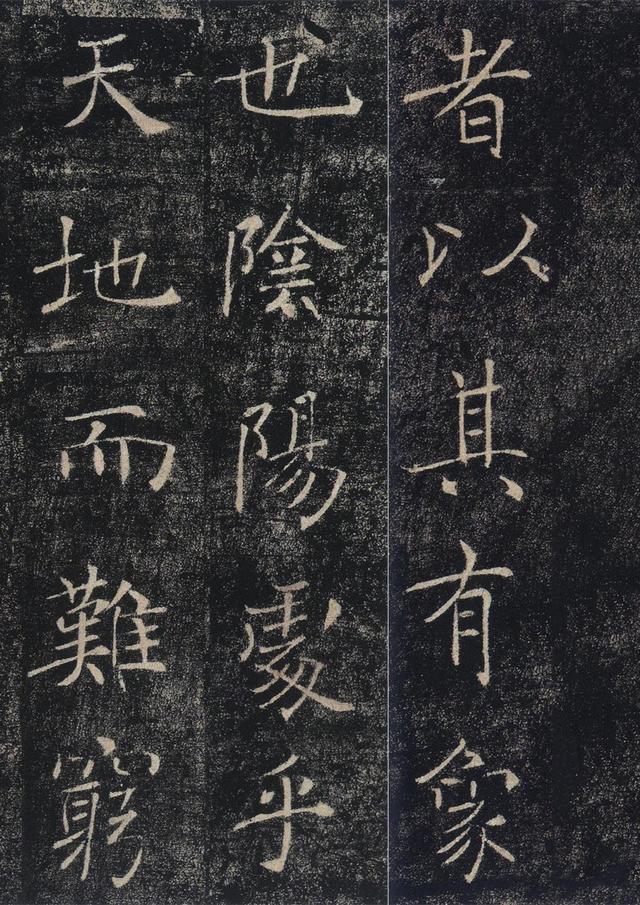 者以其有象
也陰陽處乎
天地而難窮